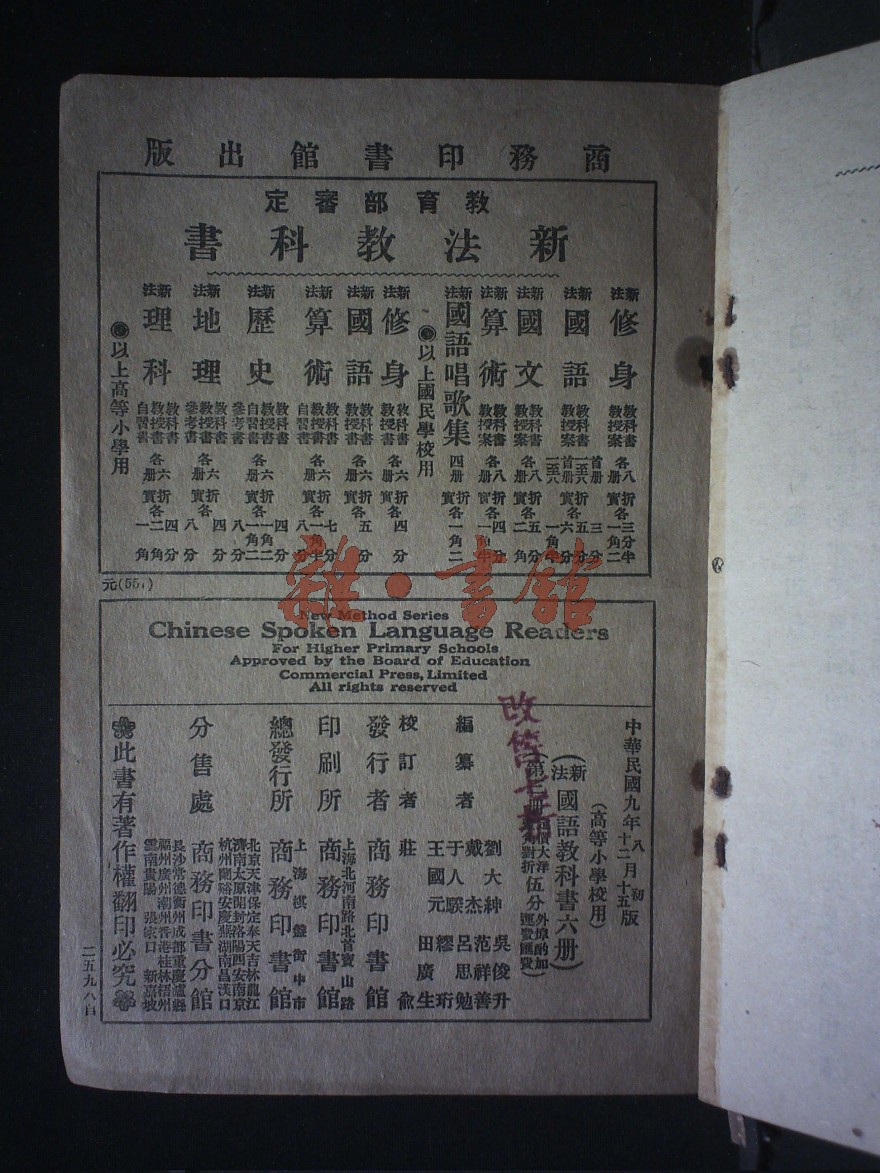 商務印書館出版
教育部審定
新法教科書
新法 修身 教科書 教授案 各八册 實折各 三分半 一角二
新法 國語 教科書 教授案
新法 國文 教科書 教授案 各八册 實折各 五分 二角
新法 算術 教科書 教授案 各八册 實折各 四分 一角半
新法 國語唱歌集 四册 實折各 一角二
◉以上國民學校用
新法 修身 教科書 教授書 各六册 實折各 四分
新法 國語 教科書 教授書 各六册 實折各 五分
新法 算術 教科書 教授書 自習書 各六册 實折各 七分 一角半 八分
新法 歷史 教科書 教授書 自習書 參考書 各六册 實折各
新法 地理 教科書 教授書 參考書 各六册 實折各 四分 八分
新法 理科 教科書 教授書 自習書 各六册 實折各 四分 二角 一角
◉以上高等小學用
New Method Series
Chinese Spoken Language Readers
For Higher Primary Schools
Approved by the Board of Education
Commercial Press, Limited
All rights reserved
中華民國九年十二月十五版
八 初
(高等小學校用)
(新法)國語教科書六册)
伍分
外埠酌加運費匯費)
改售
編纂者
劉大紳 吳俊升
戴杰 范祥善
于人騤 呂思勉
王國元 繆珩
田廣生
校訂者 莊俞
發行者 商務印書館
上海北河南路北首寶山路
印刷所 商務印書館
上海棋盤街中市
總發行所 商務印書館
北京天津保定奉天吉林龍江
濟南太原開封洛陽西安南京
杭州蘭谿安慶蕪湖南昌漢口
分售處 商務印書分館
長沙常德衡州成都重慶瀘縣
福州廣州潮州香港桂林梧州
雲南貴陽 張家口 新嘉坡
此書有著作權翻印必究
二五九八百
雜·書館